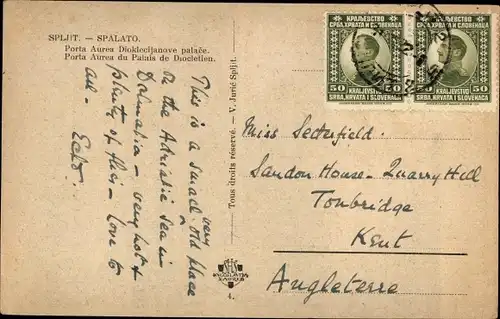 SPLJIT. — SPALATO.
Porta Aurea Dioklecijanove palače.
Porta Aurea du Palais de Diocletien.
This is a very
small old place
on the Adriatic Sea in
Dalmatia - very hot &
plenty of flies - Love to
all -
Tous droits réservé. — V. Jurić Spljt.
4.
КРАЉЕВСТВО
СРБА, ХРВАТА И СЛОВЕНАЦА
50 50
KRALJEVSTVO
SRBA, HRVATA I SLOVENACA
КРАЉЕВСТВО
СРБА, ХРВАТА И СЛОВЕНАЦА
50 50
KRALJEVSTVO
SRBA, HRVATA I SLOVENACA
Miss
Sandon House - Quarry Hill
Tonbridge
Kent
Angleterre